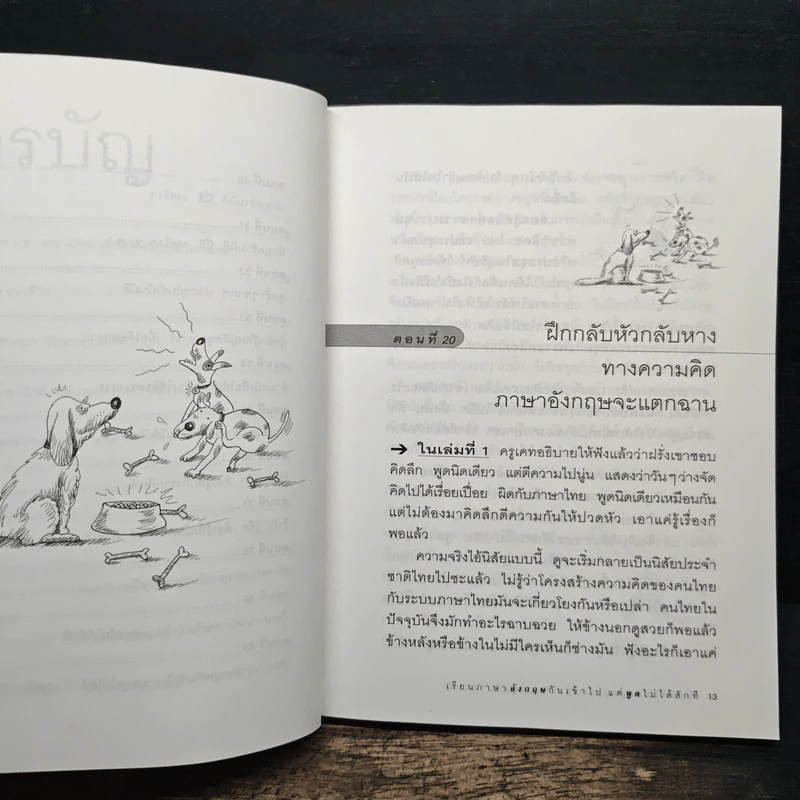 ตอนที่ 20
ฝึกกลับหัวกลับหาง
ทางความคิด
ภาษาอังกฤษจะแตกฉาน
➔ ในเล่มที่ 1 ครูเคทอธิบายให้ฟังแล้วว่าฝรั่งเขาชอบ
คิดลึก พูดนิดเดียว แต่ตีความไปนู่น แสดงว่าวันๆว่างจัด
คิดไปได้เรื่อยเปื่อย ผิดกับภาษาไทย พูดนิดเดียวเหมือนกัน
แต่ไม่ต้องมาคิดลึกตีความกันให้ปวดหัว เอาแค่รู้เรื่องก็
พอแล้ว
ความจริงไอ้นิสัยแบบนี้ ดูจะเริ่มกลายเป็นนิสัยประจำ
ชาติไทยไปซะแล้ว ไม่รู้ว่าโครงสร้างความคิดของคนไทย
กับระบบภาษาไทยมันจะเกี่ยวโยงกันหรือเปล่า คนไทยใน
ปัจจุบันจึงมักทำอะไรฉาบฉวย ให้ข้างนอกดูสวยก็พอแล้ว
ข้างหลังหรือข้างในไม่มีใครเห็นก็ช่างมัน ฟังอะไรก็เอาแค่
เรียนภาษาอังกฤษกันเข้าไป แต่พูดไม่ได้สักที 13